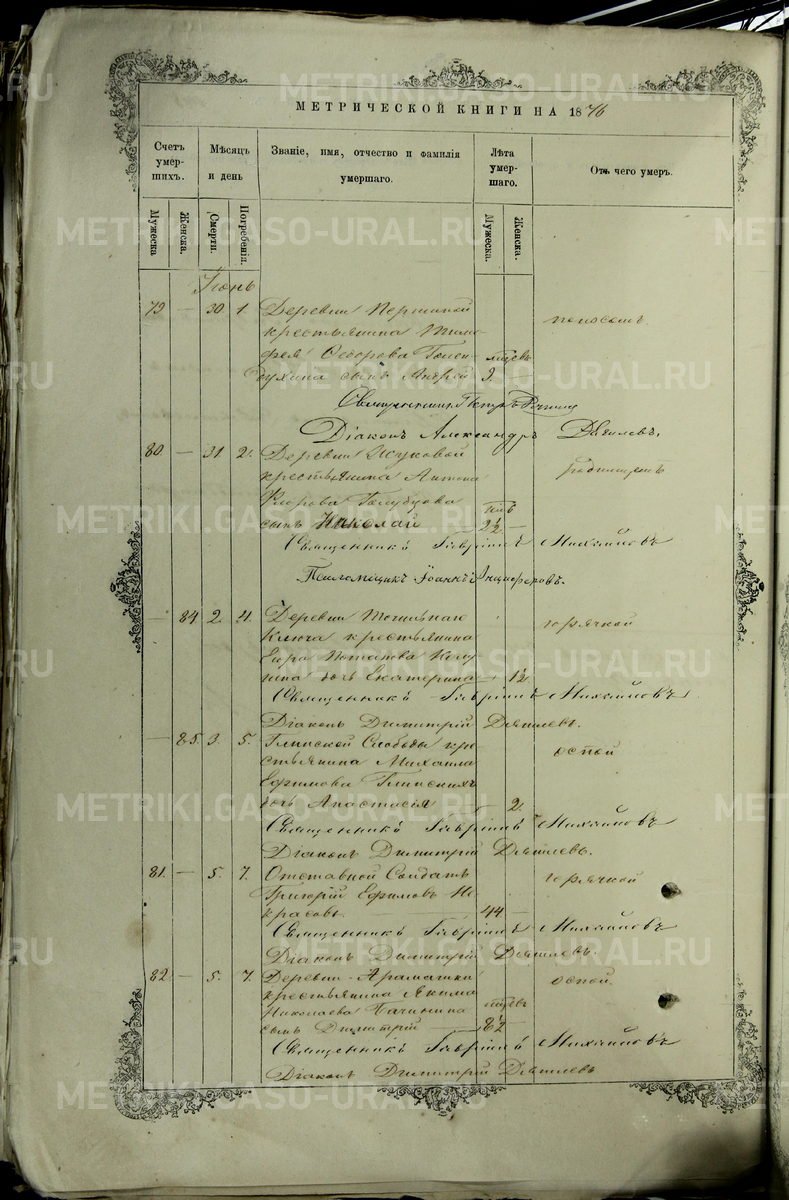 МЕТРИЧЕСКОЙ КНИГИ НА 1876
Счетъ умерших.
Мѣсяцъ и день
Званіе, имя, отчество и фамилія умершаго.
Лѣта умершаго.
Отъ чего умеръ.
Мужеска.
Женска.
Смерти.
Погребенія.
Мужеска.
Женска.
Іюнь
79 — 30 1. Деревни
крестьянина Тимо-
фея Ѳедорова
сынъ Андрей 3. поносомъ
Священникъ Петръ
Діаконъ Александръ
80 — 31. 2. Деревни Жуковой
крестьянина Антона
Голубцова
сынъ Николай 2½ — родимцемъ
Священникъ Гавріилъ Михайловъ
Псаломщикъ Іоаннъ Анциферовъ.
— 84 2. 4. Деревни
Ключа крестьянина
Егора Потапова
дочь Екатерина — 1½ горячкой
Священникъ Гавріилъ Михайловъ
Діаконъ Димитрій
— 85. 3. 5. Глинской Слободы кре-
стьянина Михаила
Ефимова Глинскихъ
дочь Анастасія — 2. оспой
Священникъ Гавріилъ Михайловъ
Діаконъ Димитрій
81. — 5. 7. Отставной Солдатъ
Григорій Ефимовъ Не-
красовъ. 44 — горячкой
Священникъ Гавріилъ Михайловъ
Діаконъ Димитрій
82. — 5. 7. Деревни Арамашки
крестьянина Якима
Николаева
сынъ Димитрій 8½ оспой.
Священникъ Гавріилъ Михайловъ
Діаконъ Димитрій
METRIKI.GASO-URAL.RU